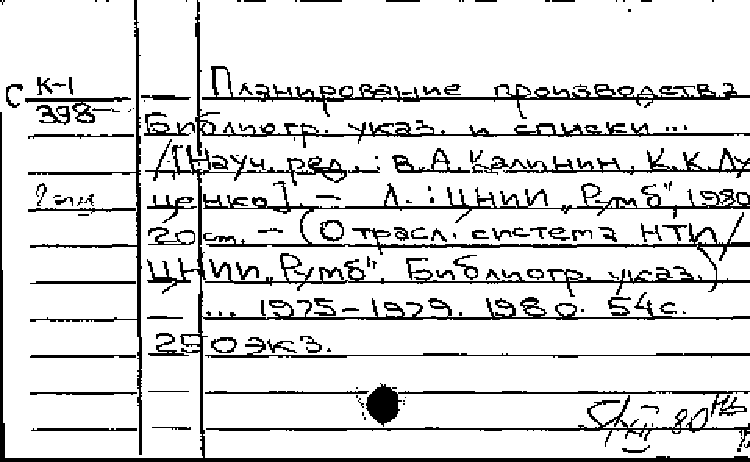 С К-1
398
Планирование производства
Библиогр. указ. и списки ...
/[Науч. ред.: В.А. Калинин, К.К. Лу
ценко]. – Л.: ЦНИИ „Румб", 1980
20 см. – (Отрасл. система НТИ/
ЦНИИ „Румб". Библиогр. указ.)
... 1975–1979. 1980. 54 с.
250 экз.
80